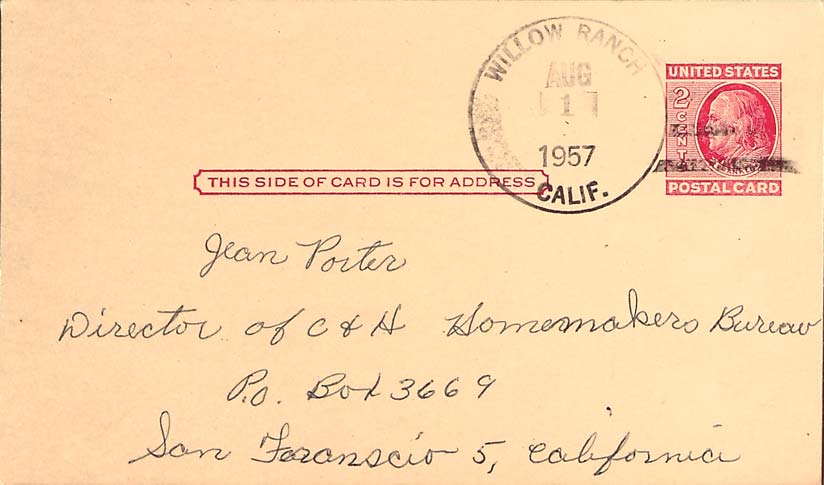 WILLOW RANCH
AUG
1
1957
CALIF.
UNITED STATES
2 CENT
POSTAL CARD
THIS SIDE OF CARD IS FOR ADDRESS
Jean Porter
Director of C & H Homemakers Bureau
P.O. Box 3669
San Foranscio 5, California